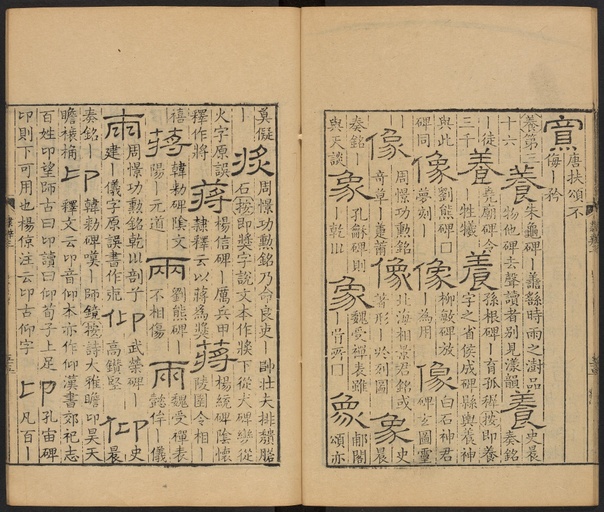 寡 唐扶頌不
侮丨矜
養第三 養 朱龜碑丨蓋繇時雨之澍品 養 史晨
十六 物他碑去聲讀者別見漾韻 奏銘
丨徒 養 堯廟碑令 養 孫根碑丨育孤稺按即養
三千 牲犧 字之省侯成碑縣輿養神
與此 像 劉熊碑口 像 柳敏碑放 像 白石神君
碑同 夢刻丨 丨為用 碑玄圖靈
丨 像 周憬功勳銘 像 北海相景君銘或 象 史晨
奇草丨蓬莆 著形丨於列圖
奏銘 象 孔龢碑則 象 魏受禪表雖 象 郙閣
與天談 丨乾㐀 丨胥所口 頌亦
奠儗 奬 周憬功勳銘乃命良吏丨 帥壯夫排䫻𥓓
丨 石按即奬字說文本作㢡下從犬碑變從
火字原誤 蔣 楊信碑丨厲兵甲 蔣 楊統碑陰懷
釋作將 隸釋云以蔣為奬 陵圉令相丨
禧 蔣 韓勑碑陰文 兩 劉熊碑丨 兩 魏受禪表
陽丨元道 不相傷 懿侔丨儀
兩 周憬功勳銘乾㐀剖丨 仰 武榮碑丨 仰 史晨
建丨儀字原誤書作 高鑽堅
奏銘丨 卬 韓勑碑嘆丨師鏡按詩大雅瞻卬昊天
瞻禳 卬 釋文云卬音仰本亦作仰漢書郊祀志
百姓卬望師古曰卬讀曰仰荀子上足 卬 孔宙碑
卬則下可用也楊倞注云卬古仰字 凡百丨